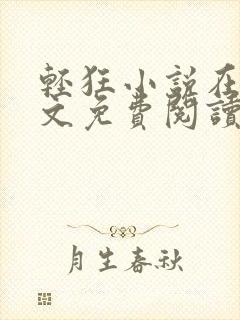 輕狂小說在
文免費閱讀
月生春秋